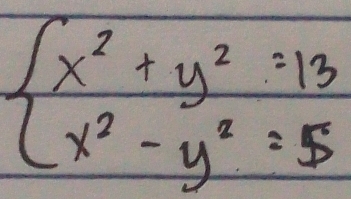 x² + y² = 13
x² - y² = 5